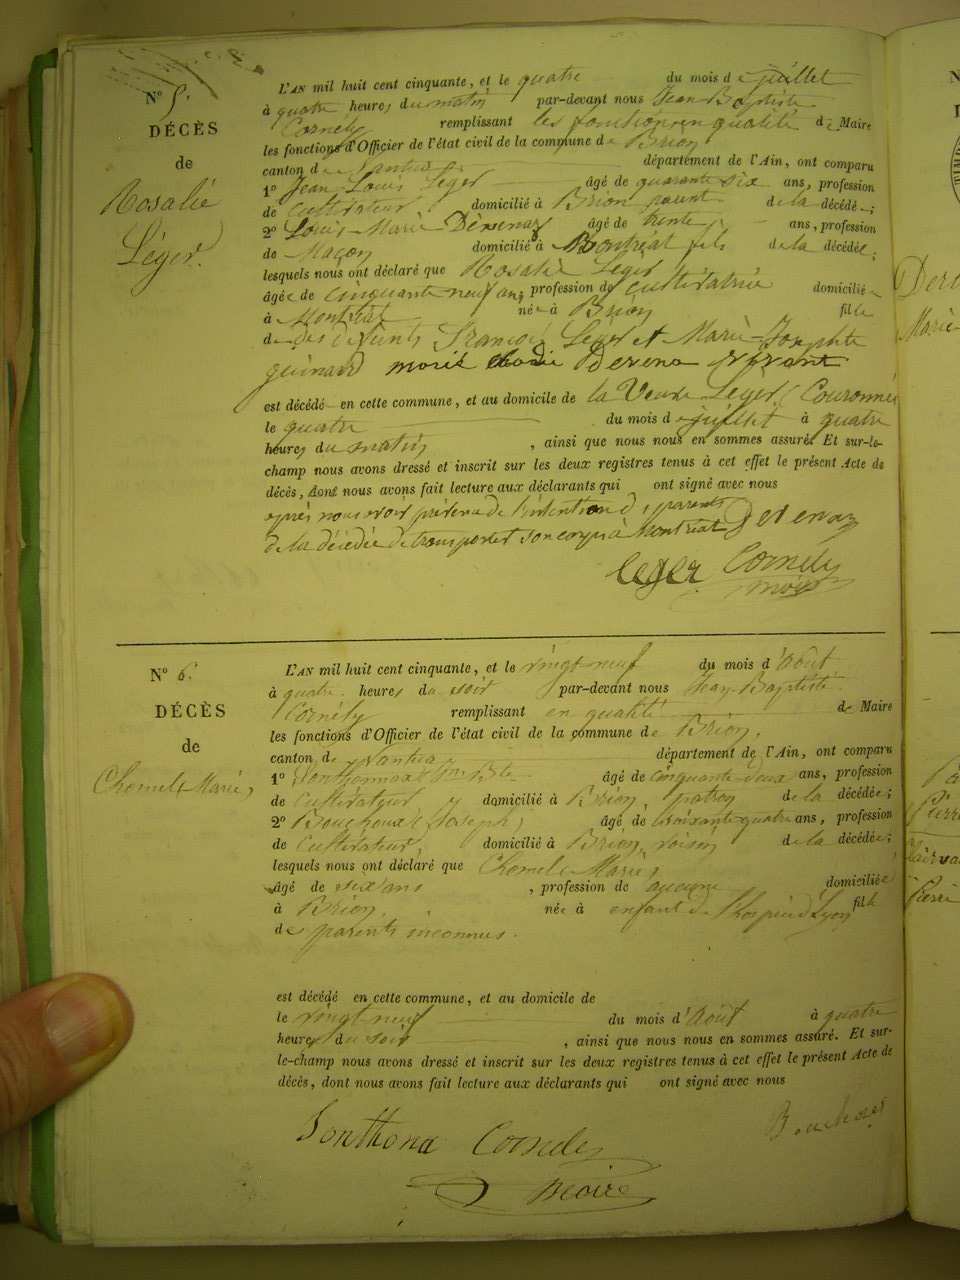 N° 5.
DÉCÈS
de
Rosalie
Léger.
L'AN mil huit cent cinquante, et le quatre du mois de juillet
à quatre heures du matin par-devant nous Jean Baptiste
Cornély remplissant les fonctions en qualité de Maire
les fonctions d'Officier de l'état civil de la commune de Brion
canton de Nantua département de l'Ain, ont comparu
1° Jean Louis Léger âgé de quarante six ans, profession
de cultivateur domicilié à Brion parent de la décédée;
2° Louis Marie Dévenaz âgé de trente ans, profession
de Maçon domicilié à Montréal fils de la décédée;
lesquels nous ont déclaré que Rosalie Léger
âgée de cinquante neuf ans, profession de cultivatrice domiciliée
à Montréal née à Brion fille
de des défunts François Léger et Marie Josephte
guinard
est décédé en cette commune, et au domicile de la Veuve Léger
le quatre du mois de juillet à quatre
heures du matin, ainsi que nous nous en sommes assuré. Et sur-le-
champ nous avons dressé et inscrit sur les deux registres tenus à cet effet le présent Acte de
décès, dont nous avons fait lecture aux déclarants qui ont signé avec nous
après nous avoir prévenu de l'intention des parents
de la décédée de transporter son corps à Montréal Devenaz
leger Cornély
maire
N° 6.
DÉCÈS
de
Chomel Marie,
L'AN mil huit cent cinquante, et le vingt neuf du mois d'Août
à quatre heures du soir par-devant nous Jean-Baptiste
Cornély remplissant en qualité de Maire
les fonctions d'Officier de l'état civil de la commune de Brion,
canton de Nantua département de l'Ain, ont comparu
1° Sonthonnax âgé de cinquante deux ans, profession
de Cultivateur domicilié à Brion, patron de la décédée;
2° Bouchoux (Joseph) âgé de soixante quatre ans, profession
de Cultivateur, domicilié à Brion, voisin de la décédée;
lesquels nous ont déclaré que Chomel Marie,
âgé de six ans, profession de aucune domiciliée
à Brion. née à enfant de l'hospice d'Lyon fille
de parents inconnus.
est décédé en cette commune, et au domicile de
le vingt neuf du mois d'Août à quatre
heures du soir, ainsi que nous nous en sommes assuré. Et sur-
le-champ nous avons dressé et inscrit sur les deux registres tenus à cet effet le présent Acte de
décès, dont nous avons fait lecture aux déclarants qui ont signé avec nous
Sonthona Cornély Bouchoux
maire